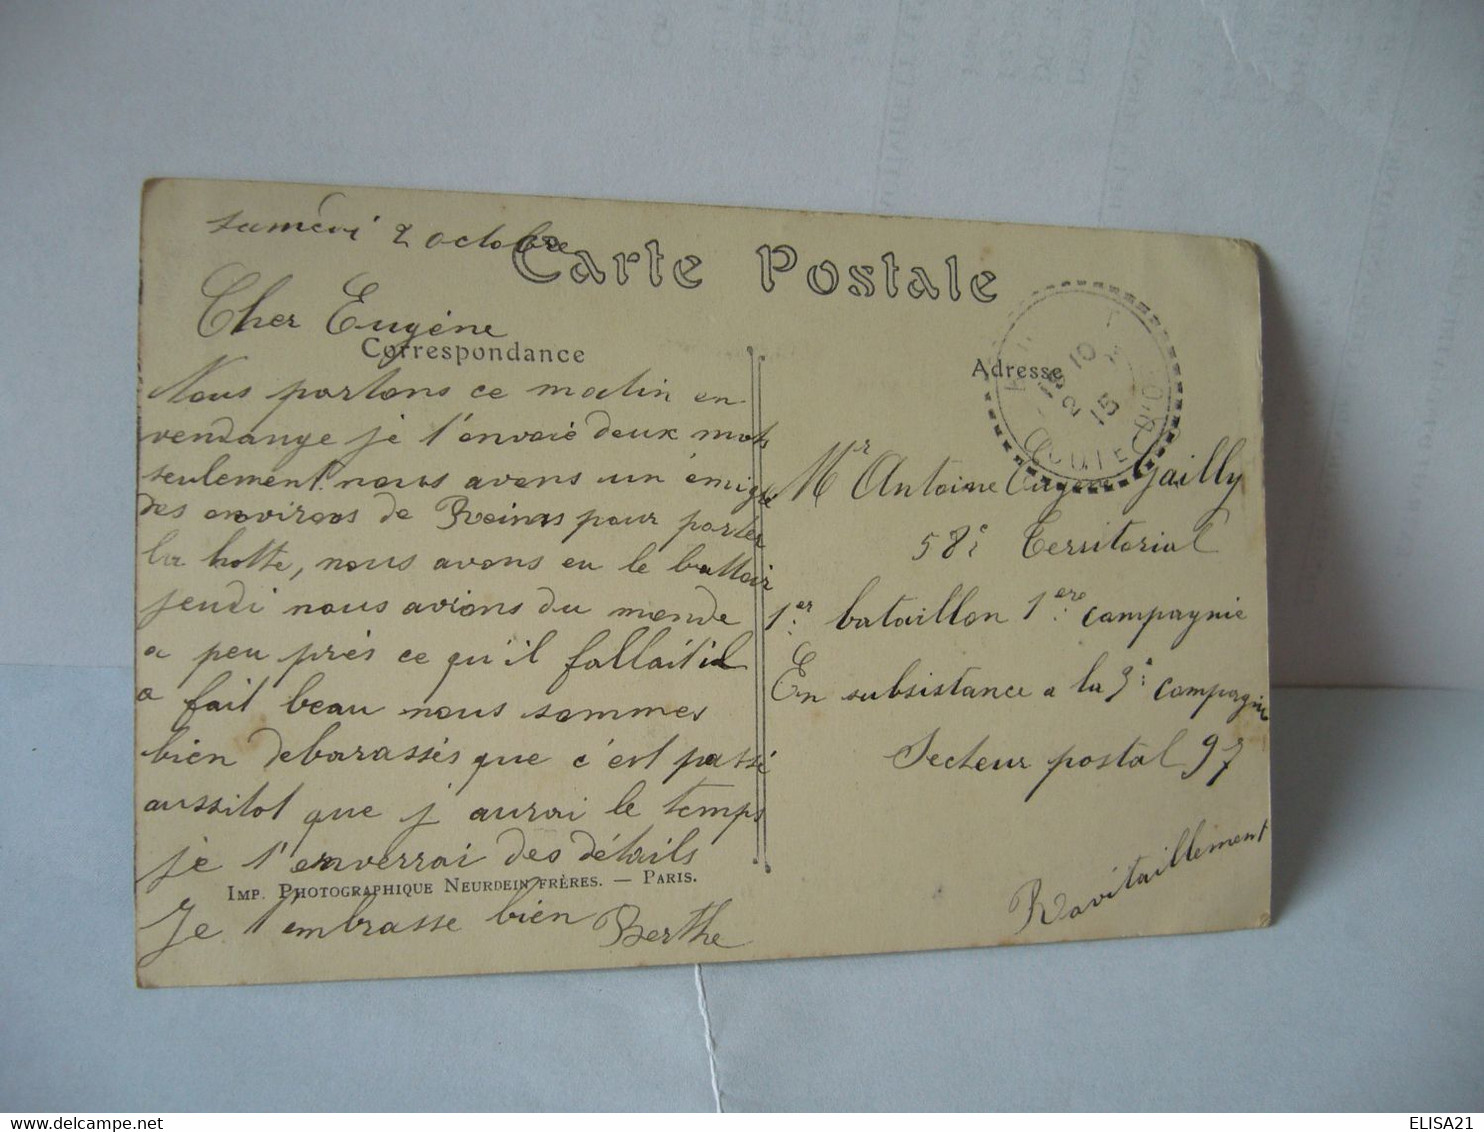 samedi 2 octobre
Carte Postale
Cher Eugéne
Correspondance
Nous partons ce matin en
vendange je t'envoie deux mots
seulement nous avons un émigré
des environs de Reims pour porter
la hotte, nous avons eu le battoir
jeudi nous avions du monde
a peu près ce qu'il fallait il
a fait beau nous sommes
bien debarassés que c'est passé
aussitot que j aurai le temps
je t'enverrai des détails
IMP. PHOTOGRAPHIQUE NEURDEIN FRÈRES. — PARIS.
Je t'embrasse bien Berthe
Adresse
10
2
15
Mr Antoine Eugene Gailly
58e Territorial
1er bataillon 1ere Compagnie
En subsistance a la 9e Compagnie
Secteur postal 97
Ravitaillement
ELISA21